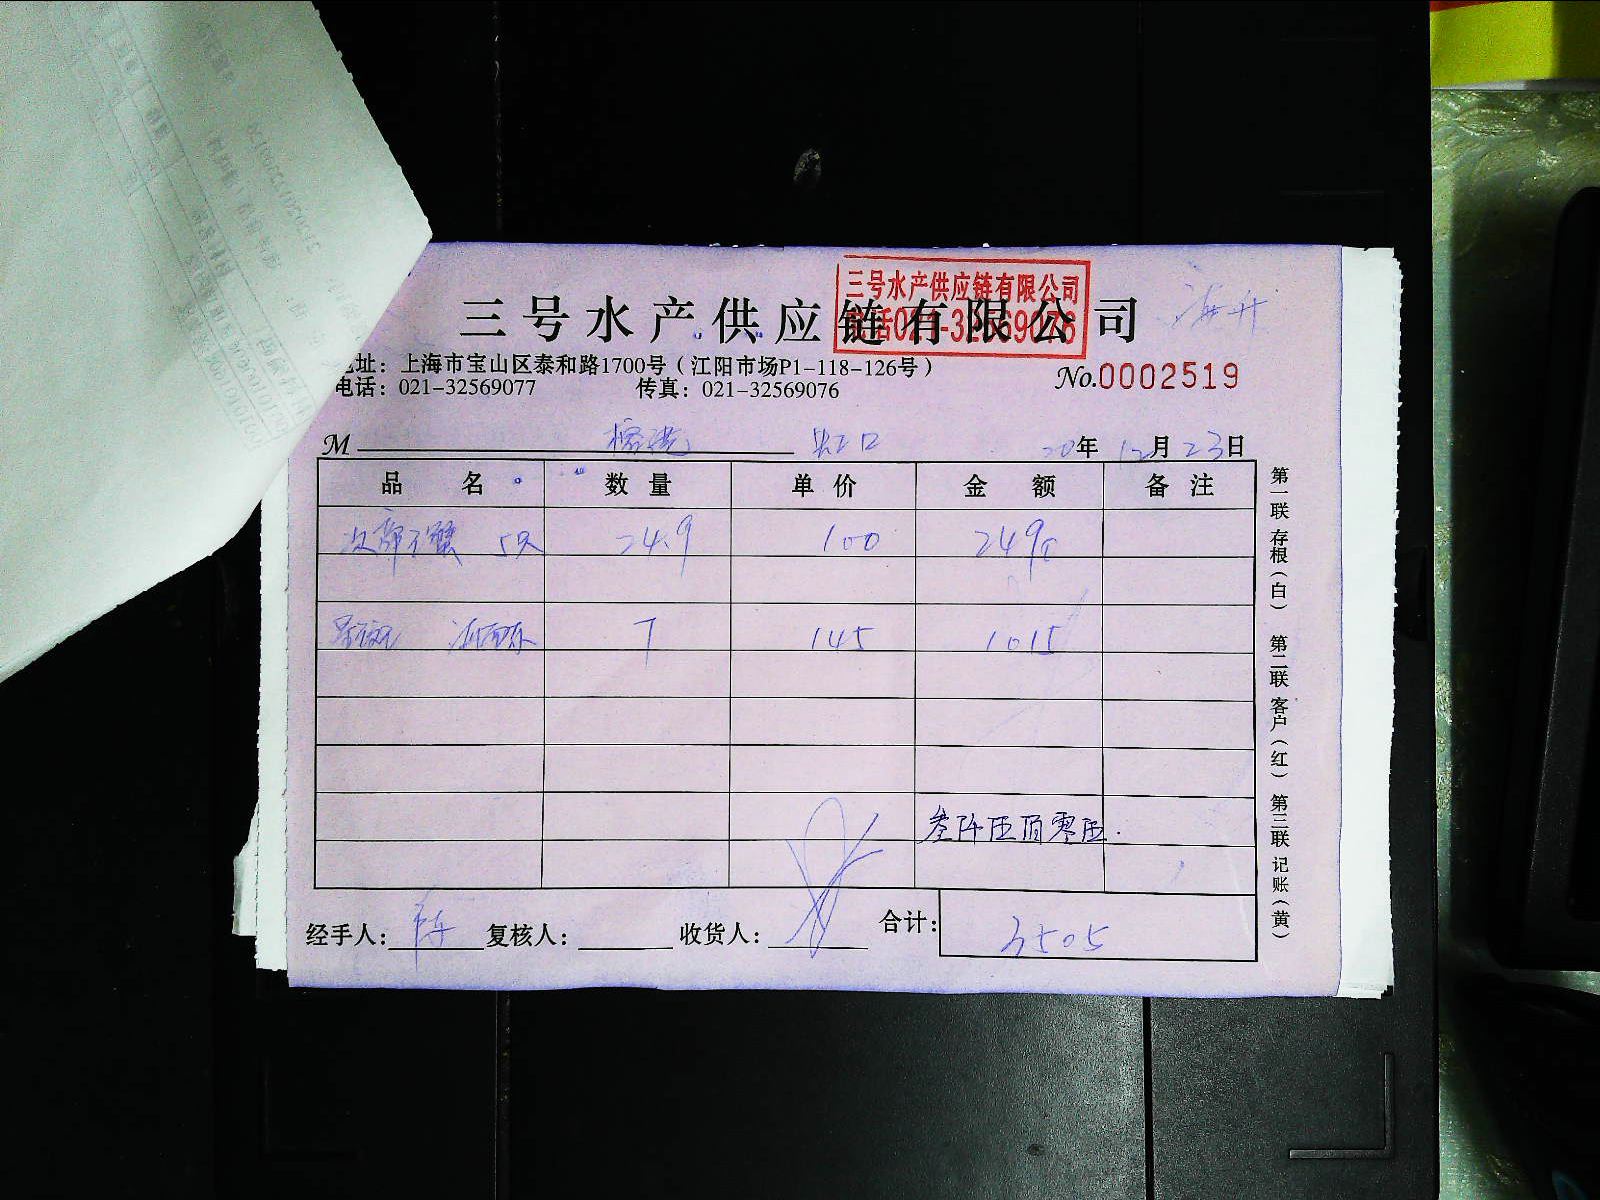 三号水产供应链有限公司
三号水产供应链有限公司
021-32569076
址：上海市宝山区泰和路1700号（江阳市场P1-118-126号）
电话：021-32569077 传真：021-32569076
No.0002519
M 虹口 20年12月23日
品名 数量 单价 金额 备注
蟹 5只 24.9 100 2490
7 145 1015
叁仟伍佰零伍.
经手人： 复核人： 收货人： 合计：3505
第一联 存根（白） 第二联 客户（红） 第三联 记账（黄）